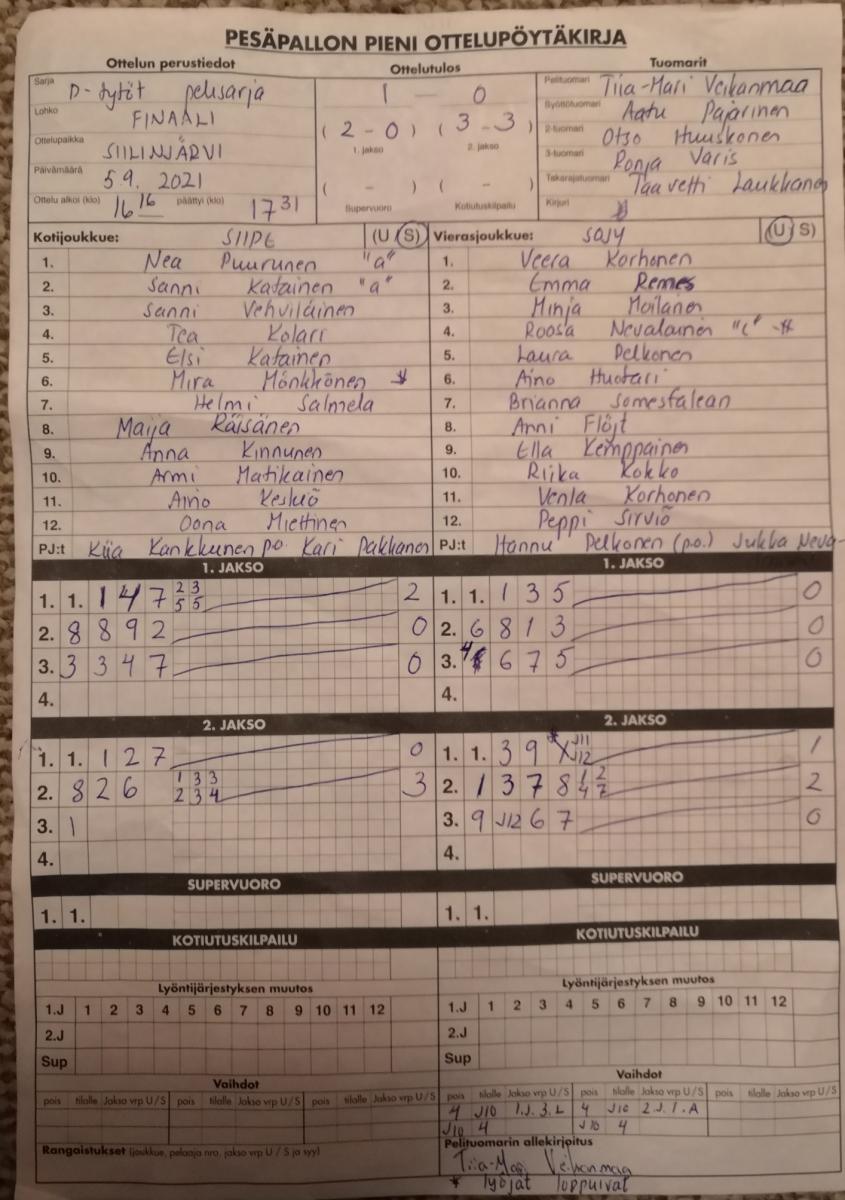 PESÄPALLON PIENI OTTELUPÖYTÄKIRJA
Ottelun perustiedot
Sarja D-tytöt pelisarja
Lohko FINAALI
Ottelupaikka SIILINJÄRVI
Päivämäärä 5.9. 2021
Ottelu alkoi (klo) 16 16 päättyi (klo) 17 31
Ottelutulos
1 — 0
( 2 - 0 ) ( 3 - 3 )
1. jakso 2. jakso
( - ) ( - )
Supervuoro Kotiutuskilpailu
Tuomarit
Pelituomari Tiia-Mari Veikanmaa
Syöttötuomari Aatu Pajarinen
2-tuomari Otso Huuskonen
3-tuomari Ronja Varis
Takarajatuomari Taavetti Laukkanen
Kirjuri
Kotijoukkue: SIIPE (U S)
1. Nea Puurunen "a"
2. Sanni Katainen "a"
3. Sanni Vehviläinen
4. Tea Kolari
5. Elsi Katainen
6. Mira Mönkkönen *
7. Helmi Salmela
8. Maija Räisänen
9. Anna Kinnunen
10. Armi Matikainen
11. Aino
12. Oona Miettinen
PJ:t Kiia Kankkunen po. Kari Pakkanen
Vierasjoukkue: SOJY (U S)
1. Veera Korhonen
2. Emma Remes
3. Minja Moilanen
4. Roosa Nevalainen "C" *
5. Laura Pelkonen
6. Aino Huotari
7. Brianna Somesfalean
8. Anni Flöjt
9. Ella Kemppainen
10. Riika Kokko
11. Venla Korhonen
12. Peppi Sirviö
PJ:t Hannu Pelkonen (p.o.) Jukka Neva-
1. JAKSO
1. 1. 1 4 7 2 3 2
5 5
2. 8 8 9 2 0
3. 3 3 4 7 0
4.
2. JAKSO
1. 1. 1 2 7 0
2. 8 2 6 1 3 3 3
2 3 4
3. 1
4.
SUPERVUORO
1. 1.
KOTIUTUSKILPAILU
Lyöntijärjestyksen muutos
1.J 1 2 3 4 5 6 7 8 9 10 11 12
2.J
Sup
Vaihdot
pois tilalle Jakso vrp U/S pois tilalle Jakso vrp U/S pois tilalle Jakso vrp U/S
Rangaistukset (joukkue, pelaaja nro, jakso vrp U / S ja syy)
1. JAKSO
1. 1. 1 3 5 0
2. 6 8 1 3 0
3. 4 6 7 5 0
4.
2. JAKSO
1. 1. 3 9 * X J11 1
J12
2. 1 3 7 8 1 2 2
4 7
3. 9 J12 6 7 0
4.
SUPERVUORO
1. 1.
KOTIUTUSKILPAILU
Lyöntijärjestyksen muutos
1.J 1 2 3 4 5 6 7 8 9 10 11 12
2.J
Sup
Vaihdot
pois tilalle Jakso vrp U/S pois tilalle Jakso vrp U/S
4 J10 1.J. 3. L 4 J10 2.J. 1. A
J10 4 J10 4
Pelituomarin allekirjoitus
Tiia-Mari Veikanmaa
* lyöjät loppuivat